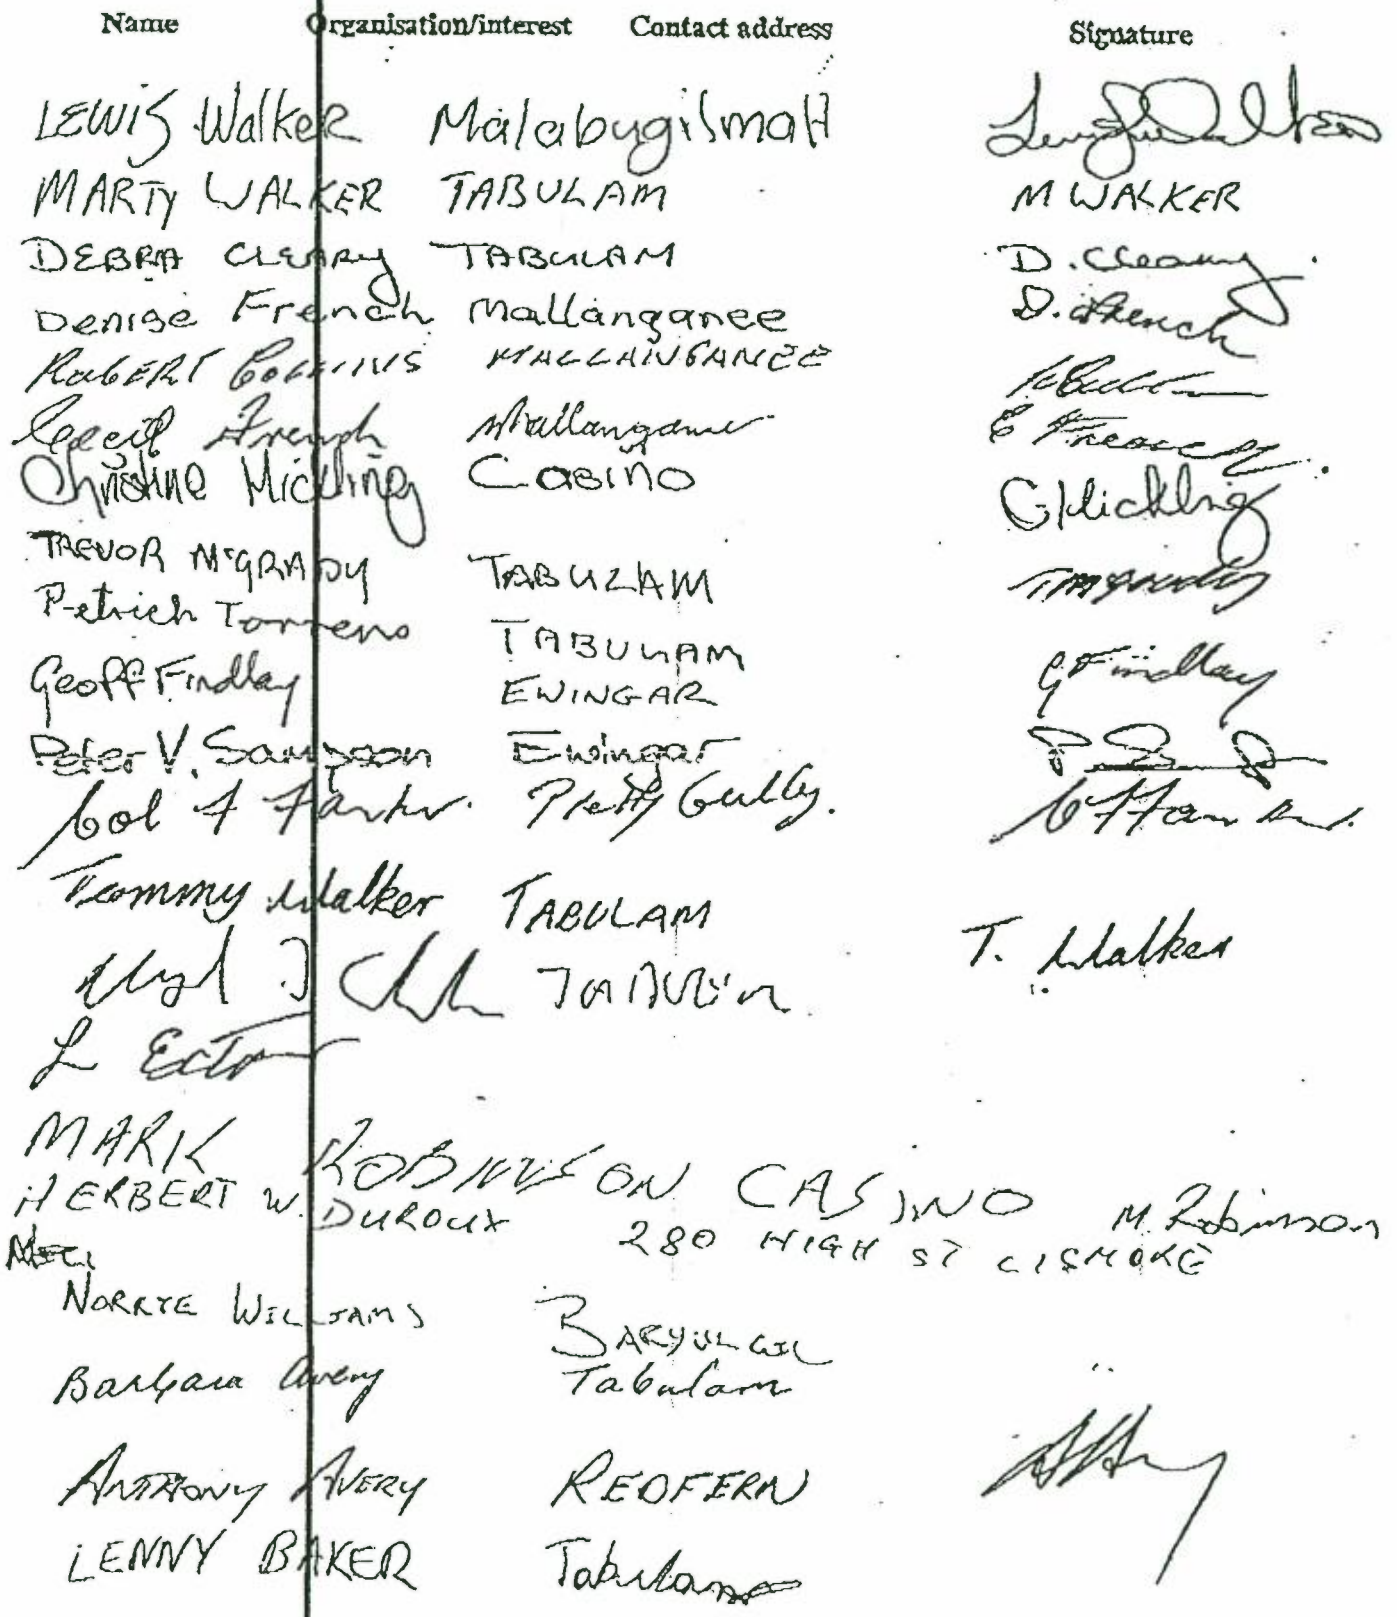 Name Organisation/interest Contact address Signature
LEWIS Walker Malabugilmah
MARTY WALKER TABULAM M WALKER
DEBRA CLEARY TABULAM D. Cleary
Denise French Mallanganee D. French
ROBERT COLLINS MALLANGANEE
Cecil French Mallanganee C French
Christine Hickling Casino C Hickling
TREVOR McGRADY TABULAM TMcGrady
Patrick Torrens TABULAM
Geoff Findlay EWINGAR G Findlay
Peter V. Sampson Ewingar
Col F Farker. Pretty Gully.
Tommy Walker TABULAM T. Walker
L Ector
MARK ROBINSON CASINO M. Robinson
HERBERT W. DUROUX 280 HIGH ST LISMORE
NORRIE WILLIAMS BARYULGIL
Barbara Avery Tabulam
ANTHONY AVERY REDFERN
LENNY BAKER Tabulam